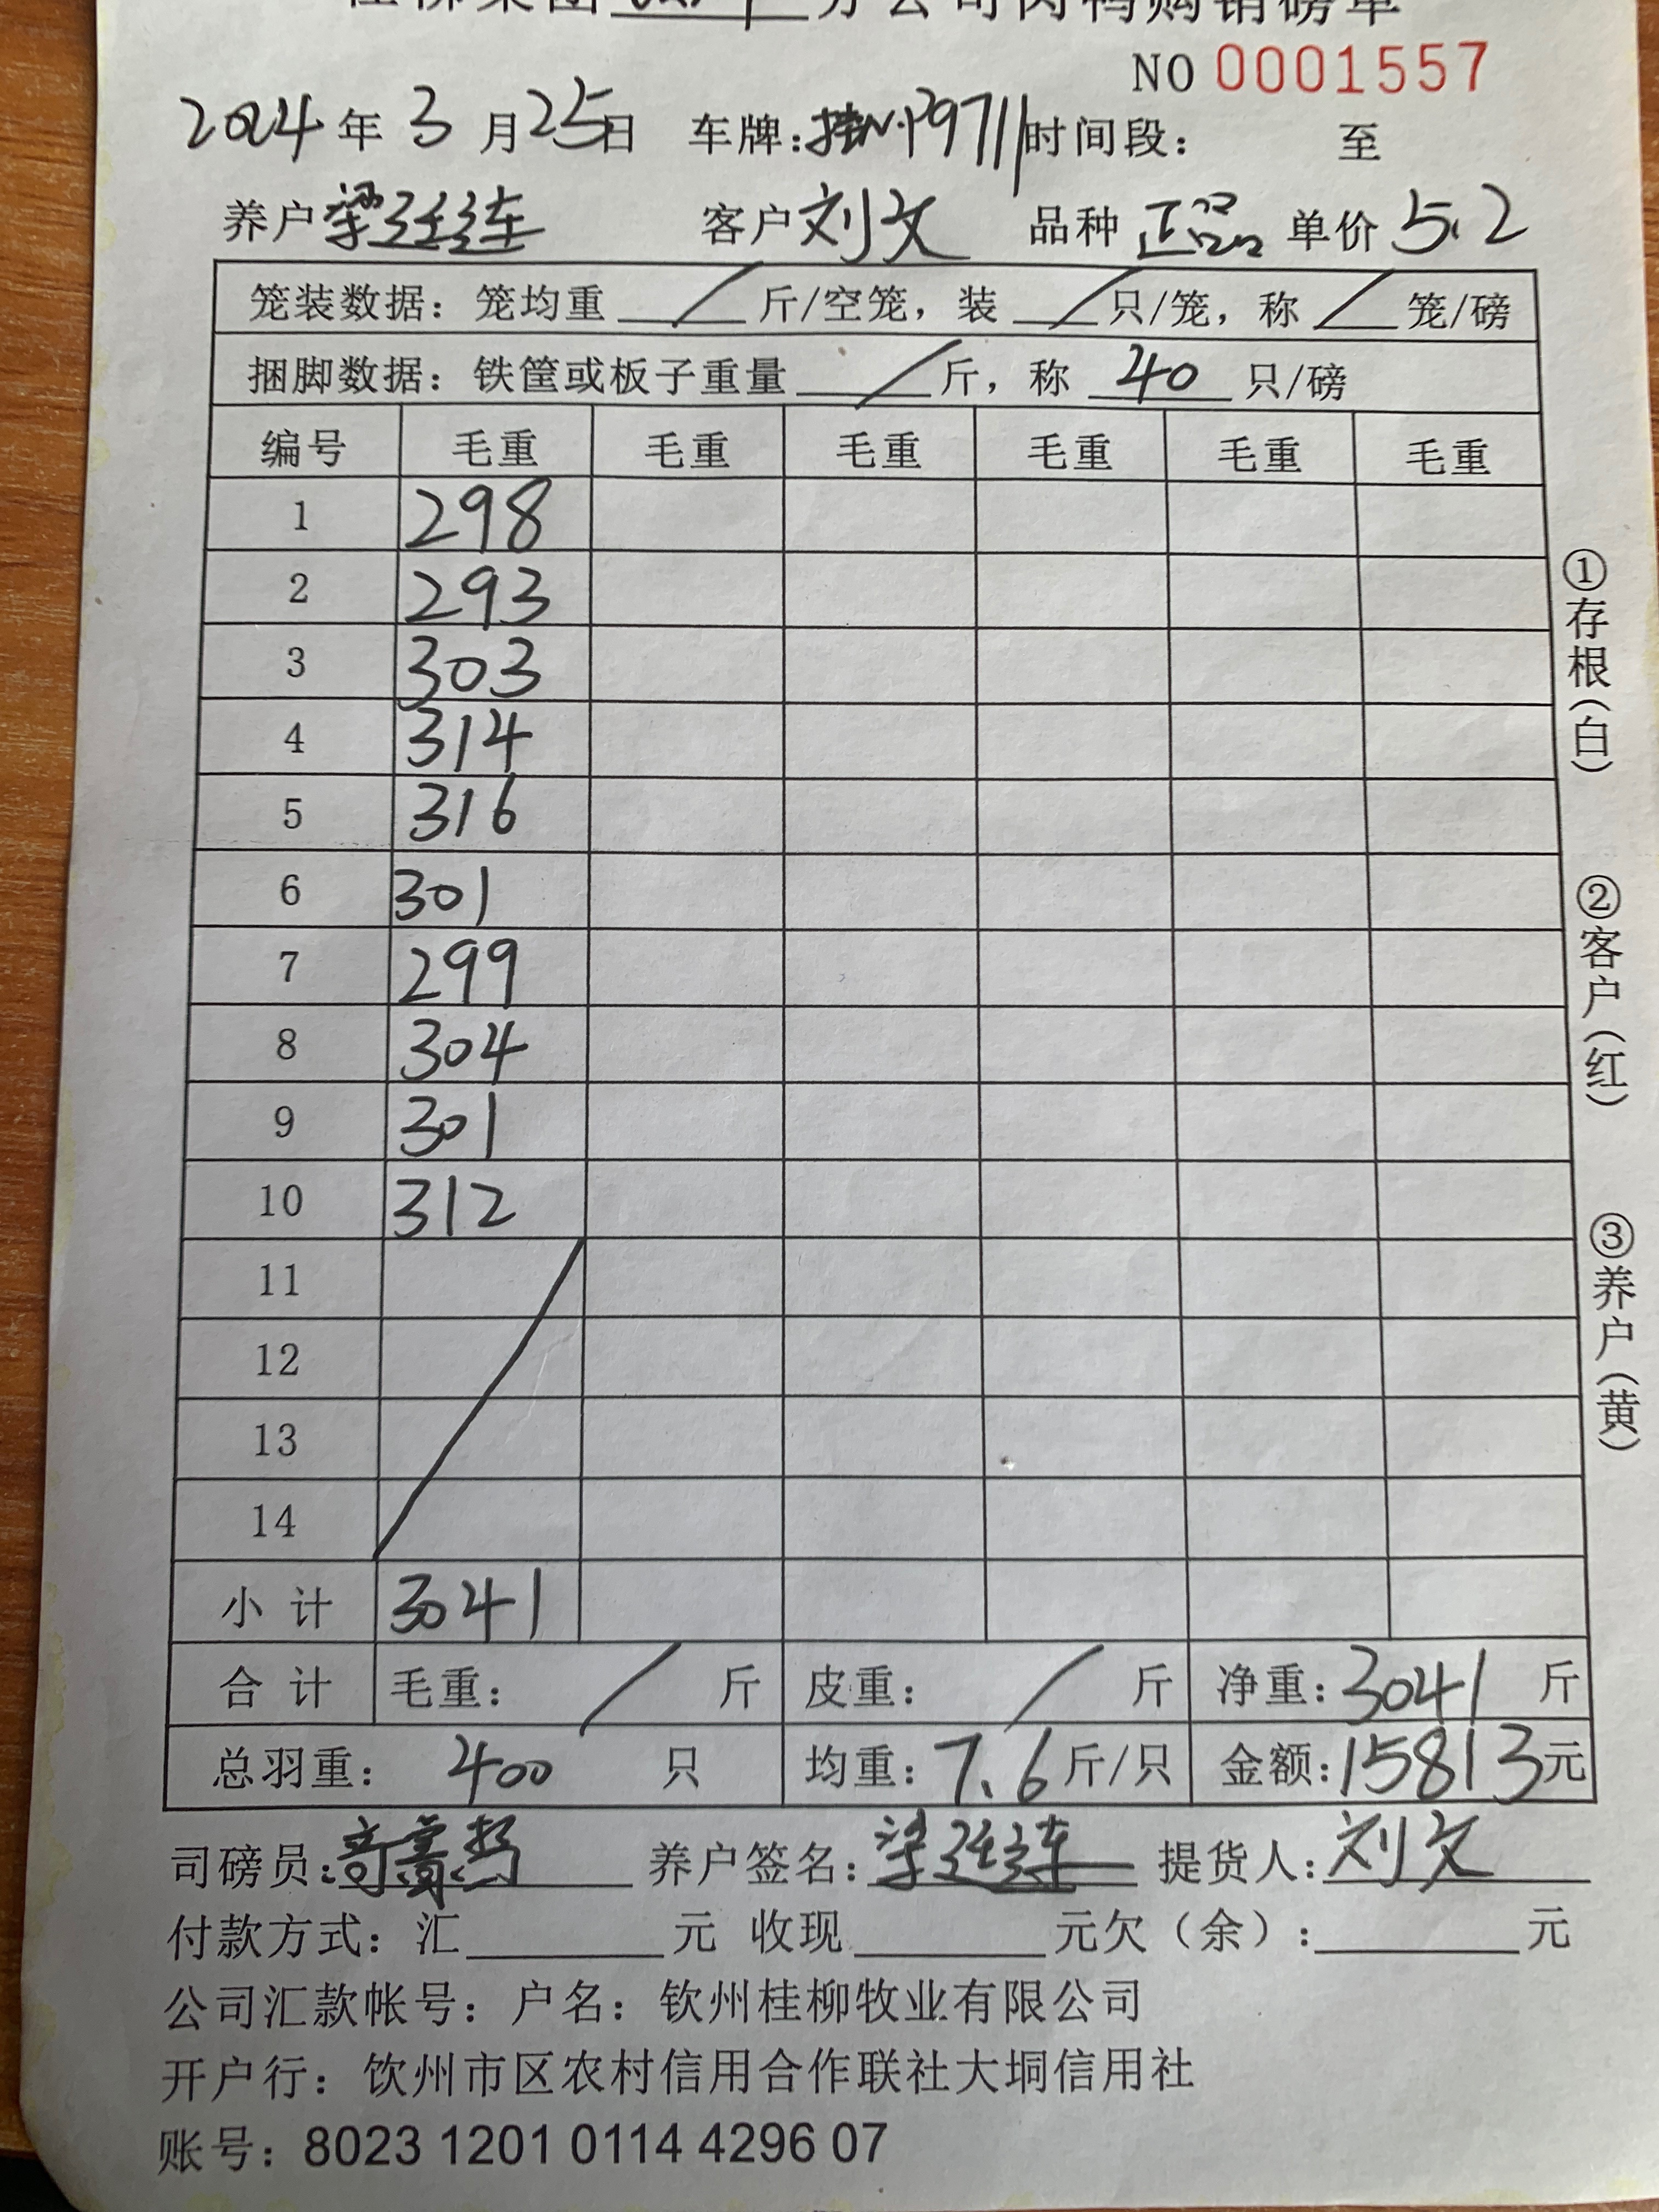 桂柳集团 分公司肉鸭购销磅单
NO 0001557
2024 年 3 月 25 日 车牌: 桂N·P9711 时间段: 至
养户 梁廷连 客户 刘文 品种 正品 单价 5.2
笼装数据: 笼均重 / 斤/空笼, 装 / 只/笼, 称 / 笼/磅
捆脚数据: 铁筐或板子重量 / 斤, 称 40 只/磅
编号 毛重 毛重 毛重 毛重 毛重 毛重
1 298
2 293
3 303
4 314
5 316
6 301
7 299
8 304
9 301
10 312
11
12
13
14
小 计 3041
合 计 毛重: / 斤 皮重: / 斤 净重: 3041 斤
总羽重: 400 只 均重: 7.6 斤/只 金额: 15813 元
司磅员: 养户签名: 梁廷连 提货人: 刘文
付款方式: 汇 元 收现 元 欠(余): 元
公司汇款帐号: 户名: 钦州桂柳牧业有限公司
开户行: 钦州市区农村信用合作联社大垌信用社
账号: 8023 1201 0114 4296 07
①存根(白)
②客户(红)
③养户(黄)